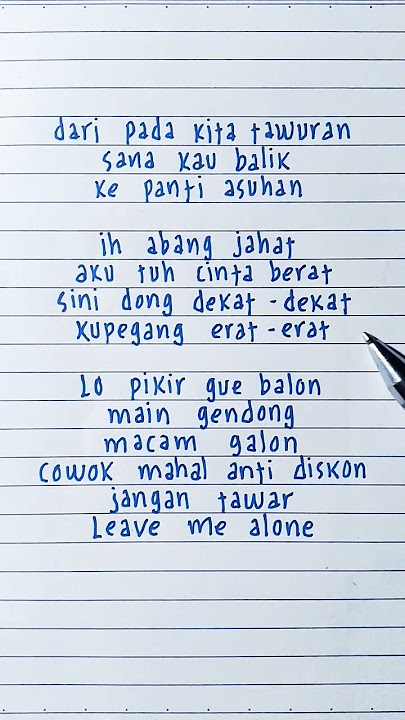 dari pada kita tawuran
sana kau balik
ke panti asuhan
ih abang jahat
aku tuh cinta berat
sini dong dekat-dekat
kupegang erat-erat
Lo pikir gue balon
main gendong
macam galon
cowok mahal anti diskon
jangan tawar
Leave me alone